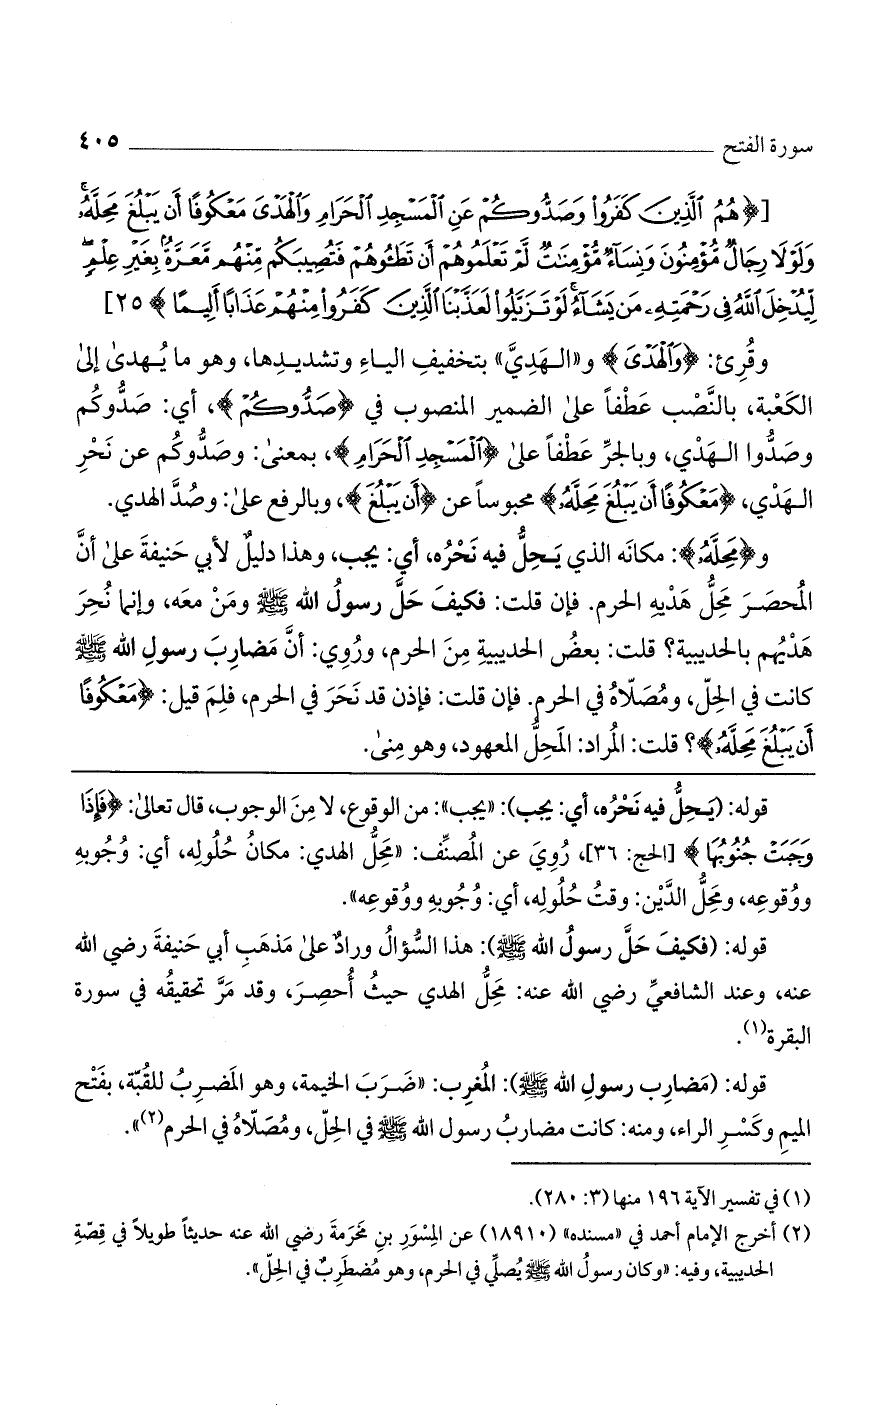 سورة الفتح ٤٠٥
[﴿هُمُ ٱلَّذِينَ كَفَرُوا۟ وَصَدُّوكُمْ عَنِ ٱلْمَسْجِدِ ٱلْحَرَامِ وَٱلْهَدْىَ مَعْكُوفًا أَن يَبْلُغَ مَحِلَّهُۥ ۚ
وَلَوْلَا رِجَالٌ مُّؤْمِنُونَ وَنِسَآءٌ مُّؤْمِنَٰتٌ لَّمْ تَعْلَمُوهُمْ أَن تَطَـُٔوهُمْ فَتُصِيبَكُم مِّنْهُم مَّعَرَّةٌۢ بِغَيْرِ عِلْمٍ ۖ
لِّيُدْخِلَ ٱللَّهُ فِى رَحْمَتِهِۦ مَن يَشَآءُ ۚ لَوْ تَزَيَّلُوا۟ لَعَذَّبْنَا ٱلَّذِينَ كَفَرُوا۟ مِنْهُمْ عَذَابًا أَلِيمًا﴾ ٢٥]
وقُرِئ: ﴿وَٱلْهَدْىَ﴾ و«الـهَدِيَّ» بتخفيفِ الياءِ وتشديدِها، وهو ما يُـهدىٰ إلىٰ
الكَعْبة، بالنَّصْب عَطْفاً علىٰ الضمير المنصوب في ﴿صَدُّوكُمْ﴾، أي: صَدُّوكُم
وصَدُّوا الـهَدْي، وبالجرِّ عَطْفاً علىٰ ﴿ٱلْمَسْجِدِ ٱلْحَرَامِ﴾، بمعنىٰ: وصَدُّوكُم عن نَحْرِ
الـهَدْي، ﴿مَعْكُوفًا أَن يَبْلُغَ مَحِلَّهُۥ﴾ محبوساً عن ﴿أَن يَبْلُغَ﴾، وبالرفع علىٰ: وصُدَّ الهدي.
و﴿مَحِلَّهُۥ﴾: مكانَه الذي يَـحِلُّ فيه نَحْرُه، أي: يجب، وهذا دليلٌ لأبي حَنيفةَ علىٰ أنَّ
المُحصَـرَ مَحِلُّ هَدْيِهِ الحرم. فإن قلت: فكيفَ حَلَّ رسولُ الله ﷺ ومَنْ معَه، وإنما نُحِرَ
هَدْيُهم بالحديبية؟ قلت: بعضُ الحديبيةِ مِنَ الحرم، ورُوِي: أنَّ مَضارِبَ رسولِ الله ﷺ
كانت في الحِلّ، ومُصَلّاهُ في الحرم. فإن قلت: فإذن قد نَحَرَ في الحرم، فلِمَ قيل: ﴿مَعْكُوفًا
أَن يَبْلُغَ مَحِلَّهُۥ﴾؟ قلت: المُراد: المَحِلُّ المعهود، وهو مِنىٰ.
قوله: (يَـحِلُّ فيه نَحْرُه، أي: يجب): «يجب»: من الوقوع، لا مِنَ الوجوب، قال تعالىٰ: ﴿فَإِذَا
وَجَبَتْ جُنُوبُهَا﴾ [الحج: ٣٦]، رُوِيَ عن المُصنِّف: «مَحِلُّ الهدي: مكانُ حُلُولِه، أي: وُجُوبِهِ
ووُقوعِه، ومَحِلُّ الدَّيْن: وقتُ حُلُولِه، أي: وُجُوبِهِ ووُقوعِه».
قوله: (فكيفَ حَلَّ رسولُ الله ﷺ): هذا السُّؤالُ واردٌ علىٰ مَذهَبِ أبي حَنيفةَ رضي الله
عنه، وعند الشافعيِّ رضي الله عنه: مَحِلُّ الهدي حيثُ أُحصِرَ، وقد مَرَّ تحقيقُه في سورة
البقرة(١).
قوله: (مَضارِب رسولِ الله ﷺ): المُغرِب: «ضَـرَبَ الخيمة، وهو المَضرِبُ للقُبّة، بفَتْح
الميمِ وكَسْـرِ الراء، ومنه: كانت مضاربُ رسول الله ﷺ في الحِلّ، ومُصَلّاهُ في الحرم(٢)».
(١) في تفسير الآية ١٩٦ منها (٣: ٢٨٠).
(٢) أخرج الإمام أحمد في «مسنده» (١٨٩١٠) عن المِسْوَرِ بنِ مَخرَمةَ رضي الله عنه حديثاً طويلاً في قِصّةِ
الحديبية، وفيه: «وكان رسولُ الله ﷺ يُصلِّي في الحرم، وهو مُضطَرِبٌ في الحِلّ».